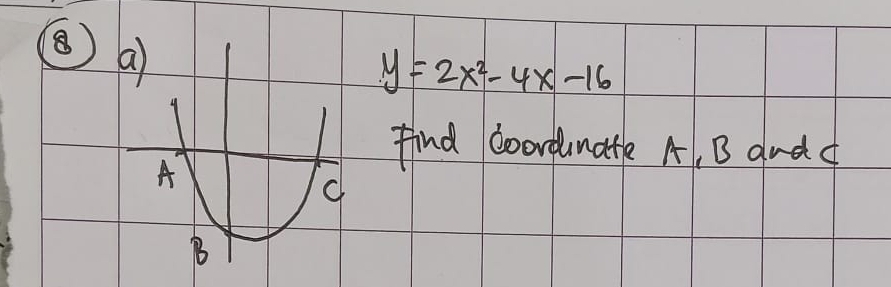 8 a)
y = 2x² - 4x - 16
Find Coordinate A, B and C
A
C
B